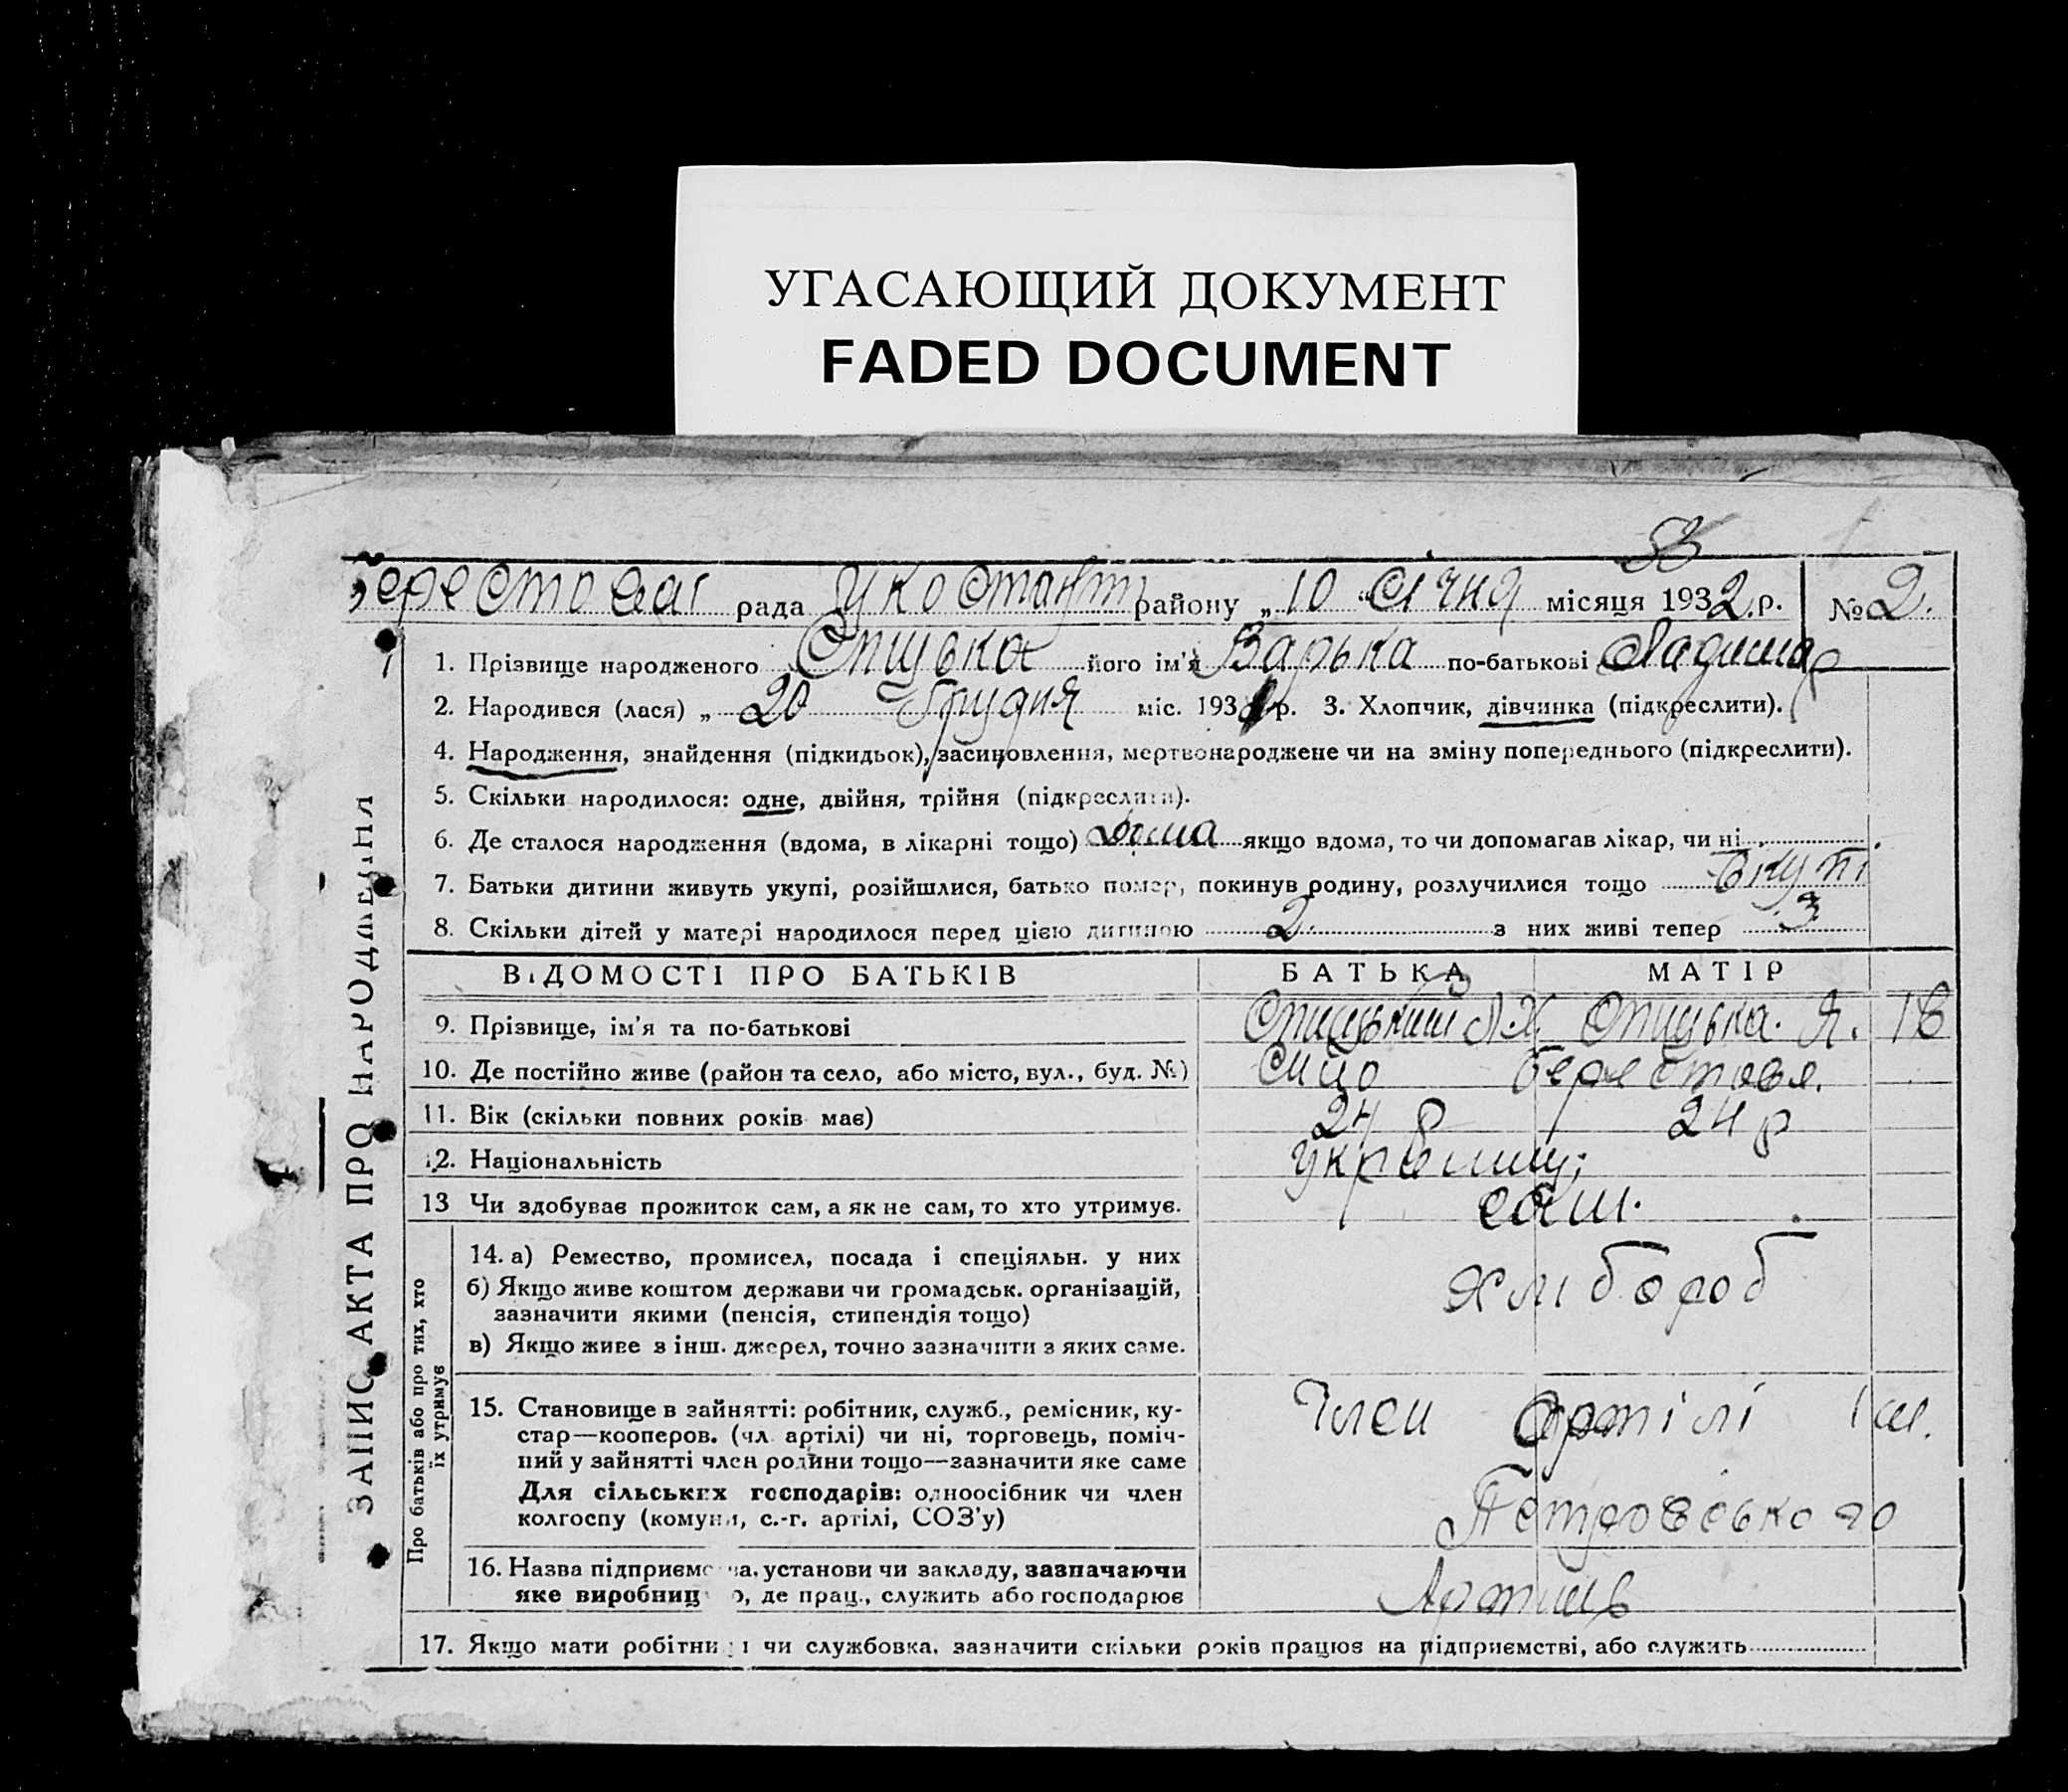 УГАСАЮЩИЙ ДОКУМЕНТ
FADED DOCUMENT
53
рада району „10“ Січня місяця 1932 р. № 2.
1. Прізвище народженого його ім'я Варька по-батькові
2. Народився (лася) „ 20 Грудня міс. 1931 р. 3. Хлопчик, дівчинка (підкреслити).
4. Народження, знайдення (підкидьок), засиновлення, мертвонароджене чи на зміну попереднього (підкреслити).
5. Скільки народилося: одне, двійня, трійня (підкреслити).
6. Де сталося народження (вдома, в лікарні тощо) Дома якщо вдома, то чи допомагав лікар, чи ні
7. Батьки дитини живуть укупі, розійшлися, батько помер, покинув родину, розлучилися тощо Вкупі
8. Скільки дітей у матері народилося перед цією дитиною 2. з них живі тепер 3
ВІДОМОСТІ ПРО БАТЬКІВ БАТЬКА МАТІР
9. Прізвище, ім'я та по-батькові
10. Де постійно живе (район та село, або місто, вул., буд. №)
11. Вік (скільки повних років має) 24 р 24 р
12. Національність
13 Чи здобуває прожиток сам, а як не сам, то хто утримує. сам.
Про батьків або про тих, хто їх утримує
14. а) Ремество, промисел, посада і спеціяльн. у них
б) Якщо живе коштом держави чи громадськ. організацій,
зазначити якими (пенсія, стипендія тощо)
в) Якщо живе з інш. джерел, точно зазначити з яких саме.
Хлібороб
15. Становище в зайнятті: робітник, служб., ремісник, ку-
стар—кооперов. (чл. артілі) чи ні, торговець, поміч-
ний у зайнятті член родини тощо—зазначити яке саме
Для сільських господарів: одноосібник чи член
колгоспу (комуни, с.-г. артілі, СОЗ'у)
Член Артілі ім.
Петровського
16. Назва підприємства, установи чи закладу, зазначаючи
яке виробництво, де прац., служить або господарює
17. Якщо мати робітниця чи службовка, зазначити скільки років працює на підприємстві, або служить
ЗАПИС АКТА ПРО НАРОДЖЕННЯ